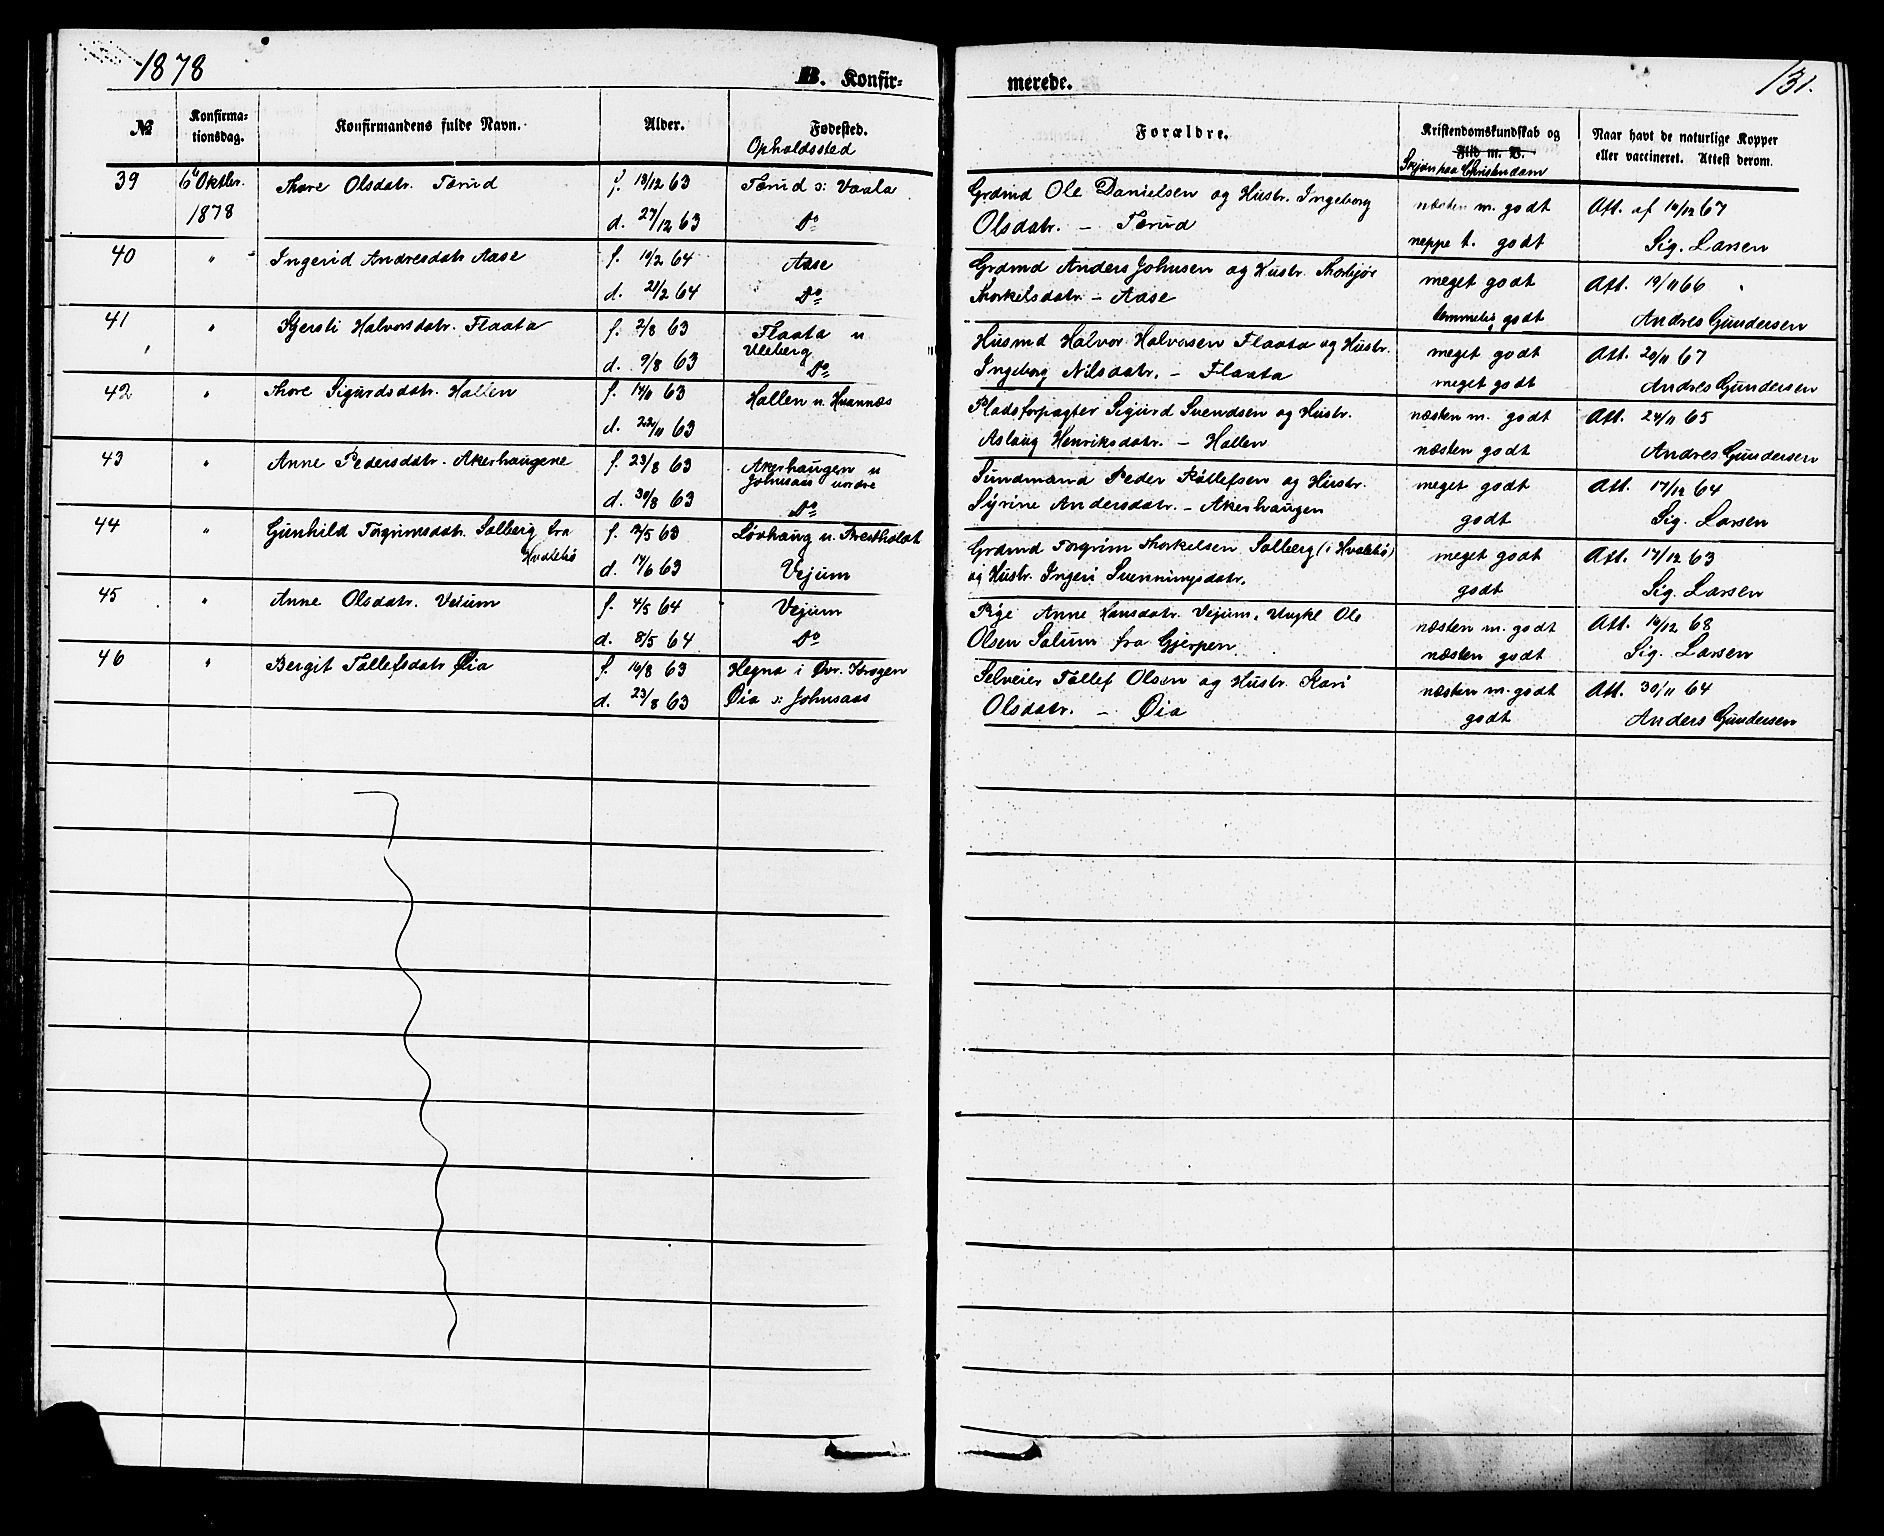 1878
B. Konfir-
merede.
131.
№
Konfirma-
tionsdag.
Konfirmandens fulde Navn.
Alder.
Fødested.
Opholdssted
Forældre.
Kristendomskundskab og
Flid m. V.
Skjøn paa Christendom
Naar havt de naturlige Kopper
eller vaccineret. Attest derom.
39 6te Oktbr. Thore Olsdatr. Terud f. 13/12 63 Terud s: Vaala Grdmd Ole Danielsen og Hustr. Ingeborg næsten m. godt Att. af 10/12 67
1878 d. 27/12 63 Do Olsdatr. - Terud neppe t. godt Sig. Larsen
40 " Ingerid Andresdatr Aase f. 10/2 64 Aase Grdmd Anders Johnsen og Hustr. Thorbjør meget godt Att. 19/11 66
d. 21/2 64 Do Thorkelsdatr. - Aase temmelig godt Andres Gundersen
41 " Kjersti Halvorsdatr. Flaata f. 2/8 63 Flaata u Husmd Halvor Halvorsen Flaata og Hustr. meget godt Att. 20/11 67
Uleberg
d. 9/8 63 Do Ingeborg Nilsdatr. - Flaata meget godt Andres Gundersen
42 " Thore Sigurdsdatr. Hallen f. 63 Hallen u. Hvannæs Pladsforpagter Sigurd Svendsen og Hustr. næsten m. godt Att. 24/11 65
d. 22/11 63 Aslaug Henriksdatr. - Hallen næsten godt Andres Gundersen
43 " Anne Pedersdatr. Akerhaugene f. 23/8 63 Akerhaugen u Sundmand Peder Røllefsen og Hustr. meget godt Att. 17/12 64
Johnsaas nordre
d. 30/8 63 Do Syrine Andersdatr. - Akerhaugen godt Sig. Larsen
44 " Gunhild Torgrimsdatr. Solberg fra f. 63 Løvhaug u. Presthold Grdmd Torgrim Thorkelsen Solberg (i Hvalebø) meget godt Att. 17/12 63
Hvalebø d. 14/6 63 Vejum og Hustr. Ingeri Svenningsdatr. godt Sig. Larsen
45 " Anne Olsdatr. Vejum f. 4/5 64 Vejum Pige Anne Hansdatr. Vejum, Ungkl Ole næsten m. godt Att. 10/12 68
d. 8/5 64 Do Olsen Solum fra Gjerpen næsten godt Sig. Larsen
46 " Bergit Tollefsdatr Øia f. 16/8 63 Hegna i Øvr. Kragen Selveier Tollef Olsen og Hustr. Kari næsten m. godt Att. 30/11 64
d. 23/8 63 Øia s: Johnsaas Olsdatr. - Øia godt Anders Gundersen